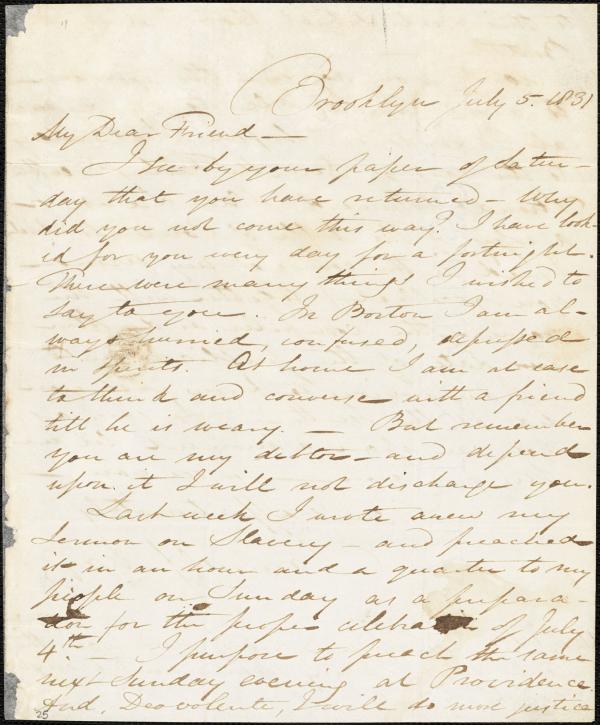 Brooklyn July 5. 1831
My Dear Friend—
I see by your paper of Satur-
day that you have returned — Why
did you not come this way? I have look-
ed for you every day for a fortnight.
There were many things I wished to
say to you. In Boston I am al-
ways hurried, confused, depressed
in spirits. At home I am at ease
to think and converse with a friend
till he is weary. — But remember
you are my debtor — and depend
upon it I will not discharge you.
Last week I wrote anew my
Sermon on Slavery — and preached
it in an hour and a quarter to my
people on Sunday as a prepara-
tion for the proper celebration of July
4th. — I purpose to preach the same
next Sunday evening at Providence.
And, Deo volente, I will do more justice
25